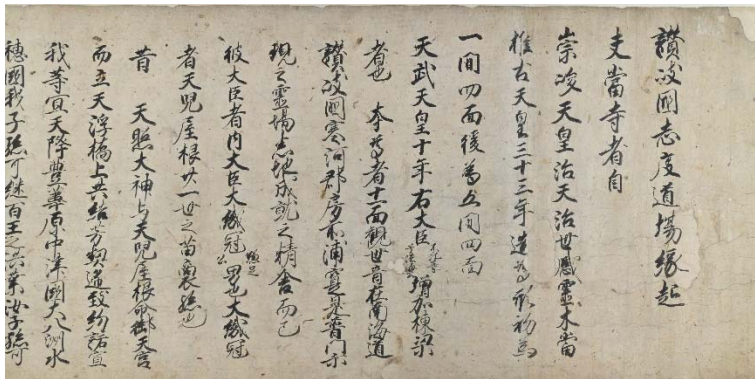 讃岐國志度道場縁起
夫當寺者自
崇峻天皇治天治世感靈木當
推古天皇三十三年造 初為
一間四面後為五間四面
天武天皇十年右大臣 増加棟梁
者也 本尊者十一面観世音在南海道
讃岐國寒河郡房前浦寔是普門示
現之靈場悉地成就之精舎而已
彼大臣者内大臣大織冠 男也大織冠
者天児屋根廿一世之苗裔孫也
昔 天照大神与天児屋根命御天宮
而立天浮橋上共結芳契遙致約諾宣
我等宜天降豊葦原中津國大八洲水
穂國我子孫可継百王之洪業汝子孫可